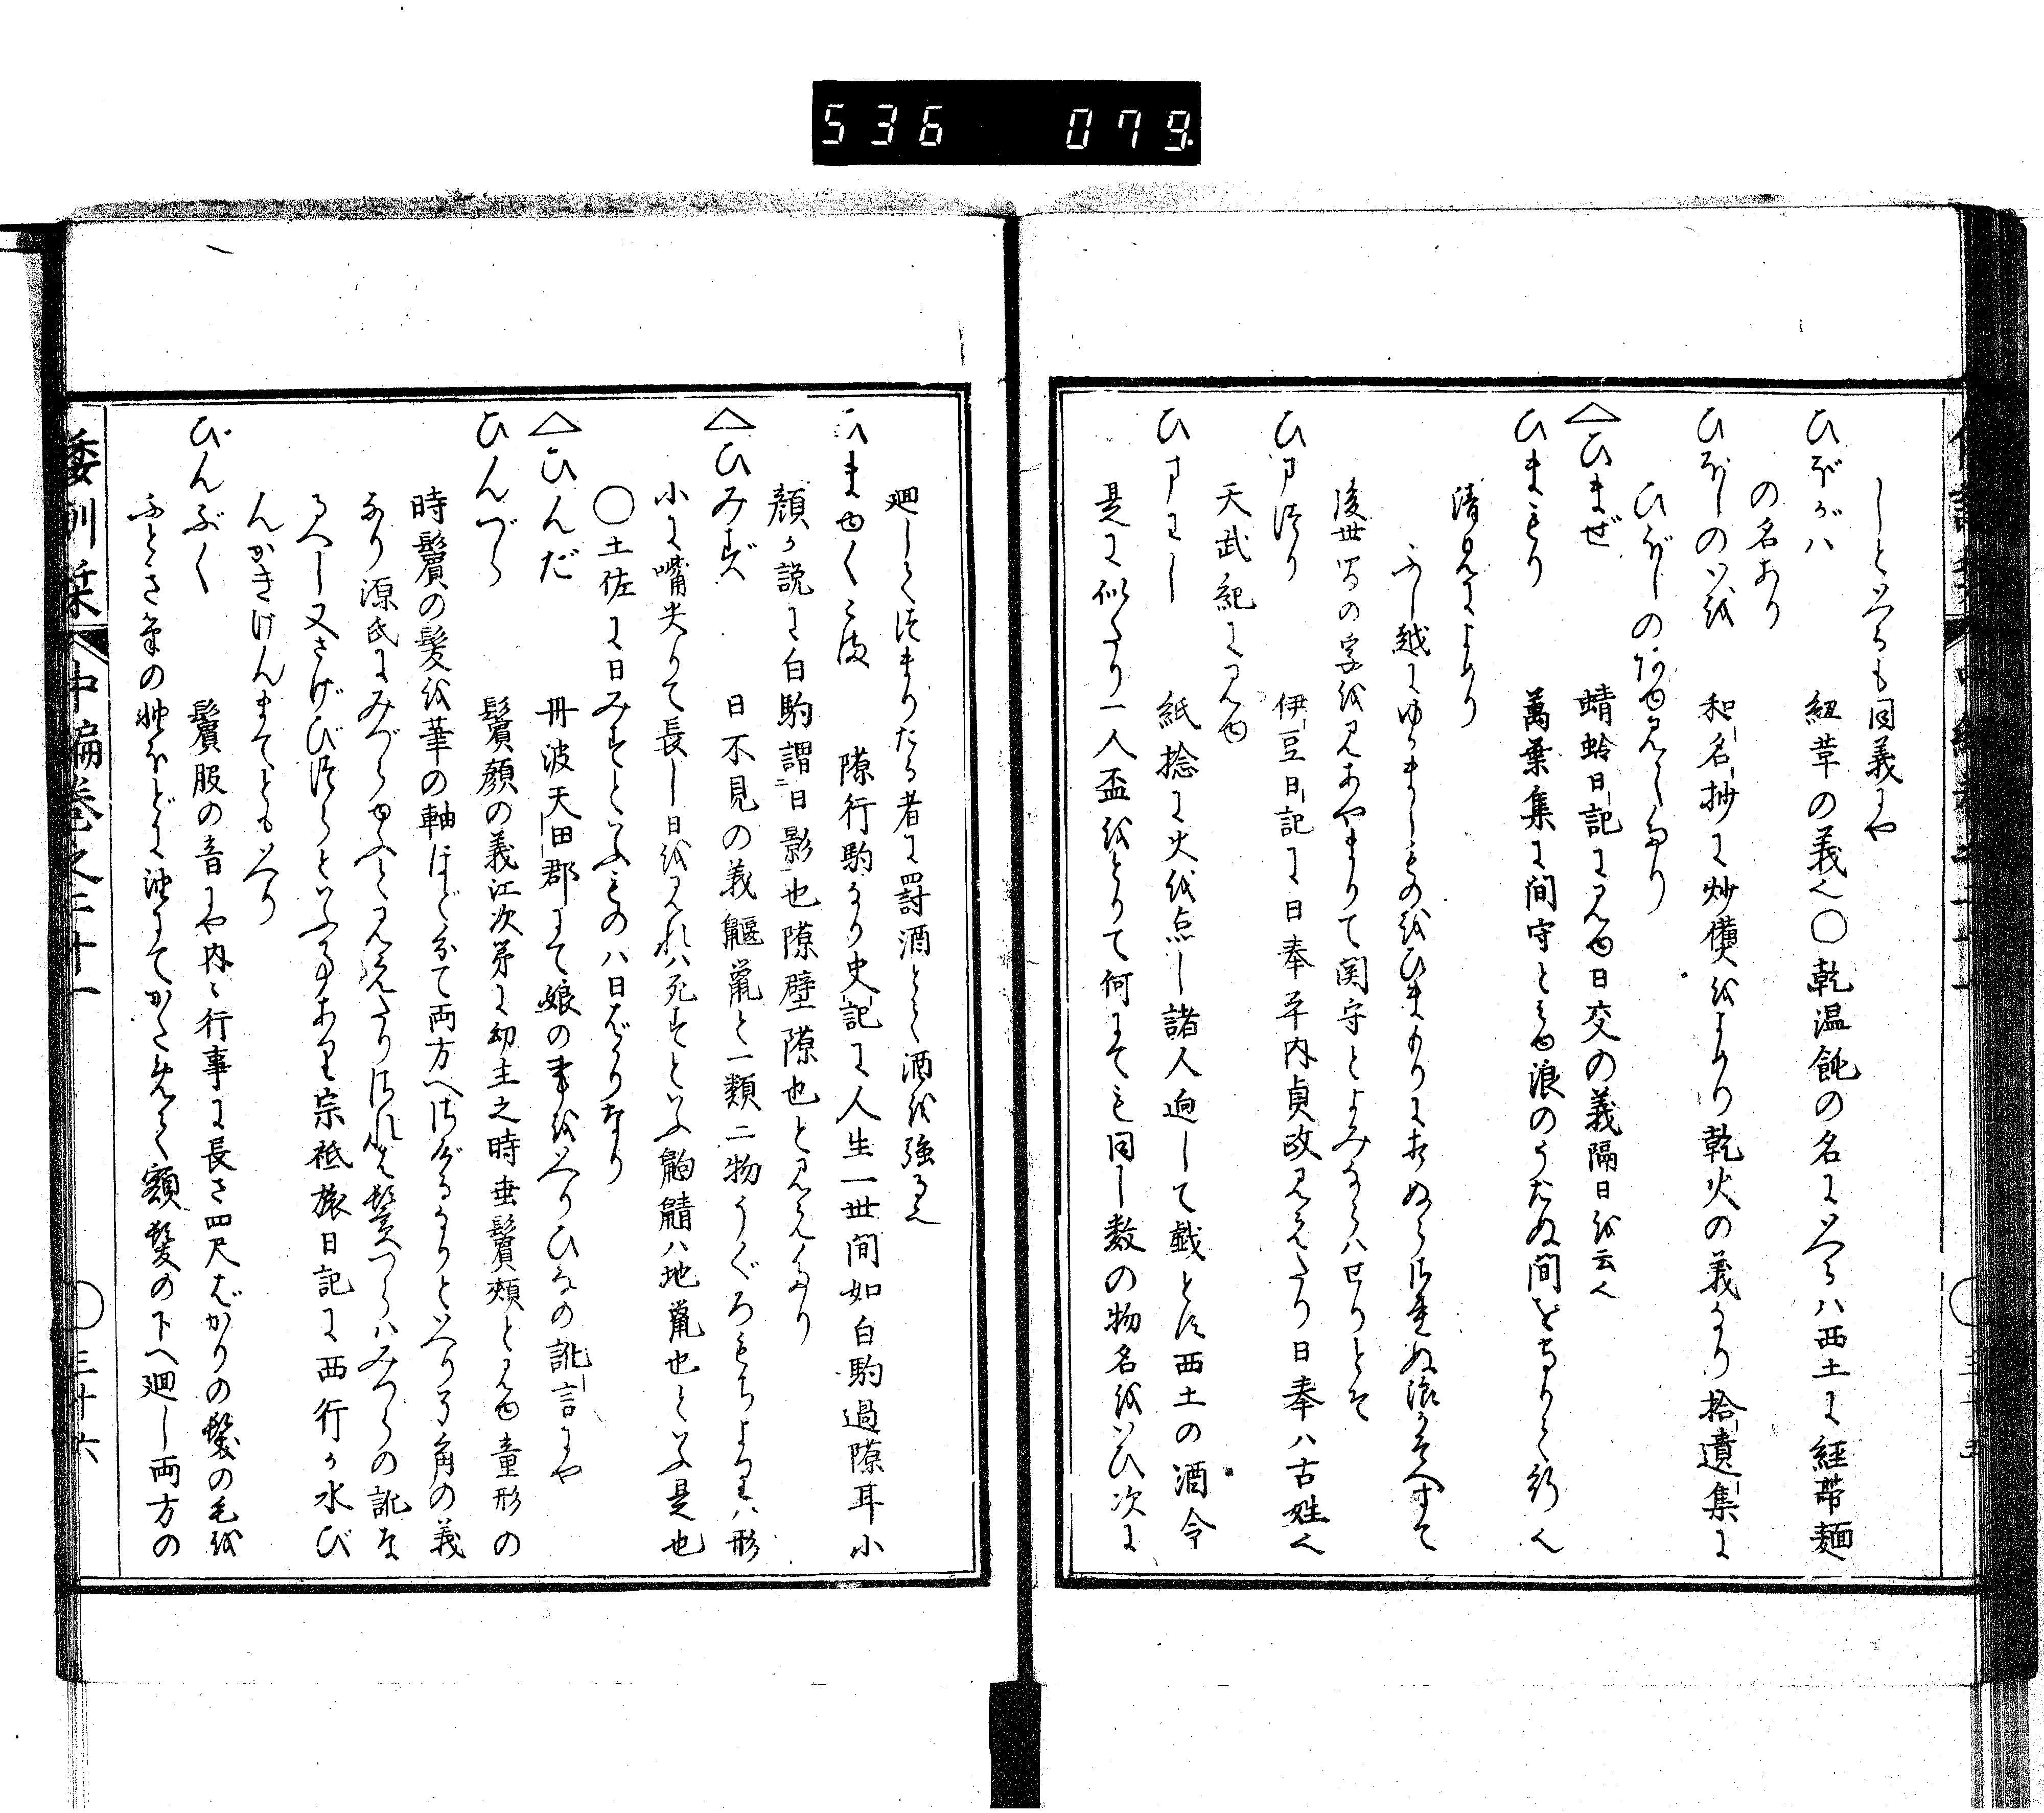 536 079
しといへるも同義にや
ひぼがハ 紐革の義也〇乾温飩の名にいへるハ西土に経帯麺
の名あり
ひぼしのいを 和名抄に炒儥をよめり乾火の義なり拾遺集に
ひぼしのあゆ見えたり
△ひまぜ 蜻蛉日記に見ゆ日交の義隔日を云也
ひまもり 萬葉集に間守とみゆ浪のうたぬ間をまもりて行也
清見によめり
ふし越にゆかましものをひまもりにおぬらされぬ浪かそへすて
後世間の字を見あやまりて関守とよみならハせりとそ
ひまつり 伊豆日記に日奉平内貞政見えたり日奉ハ古姓也
天武紀に見ゆ
ひまわし 紙捻に火を点し諸人廻して戯とす西土の酒令
是に似たり一人盃をとりて何にても同し数の物名をいひ次に
廻してつまりたる者に罸酒とて酒を強る也
ひまゆくこま 隙行駒なり史記に人生一世間如白駒過隙耳小
顔か説に白駒謂二日影也隙壁隙也と見えたり
△ひみず 日不見の義鼴鼠と一類二物うぐろもちよりハ形
小に嘴尖りて長し日を見れハ死すといふ鼩鼱ハ地鼠也といふ是也
〇土佐に日みすといふものハ日ばかりなり
△ひんだ 丹波天田郡にて娘の事をいへりひなの訛言にや
ひんづら 鬢顔の義江次第に幼主之時垂鬢頬と見ゆ童形の
時鬢の髪を筆の軸ほどなて両方へさぐるなりといへり角の義
なり源氏にみづらゆふと見えたりされと鬢つらハみつらの訛な
るへし又さげびづらといふ事あり宗祇旅日記に西行か水び
んかきげんまてともいへり
びんぶく 鬢服の音にや内々行事に長さ四尺ばかりの髪の毛を
ふとさ筆の軸ほどに油にてかためて額髪の下へ廻し両方の
倭訓栞 中編巻之二十一 〇三十六